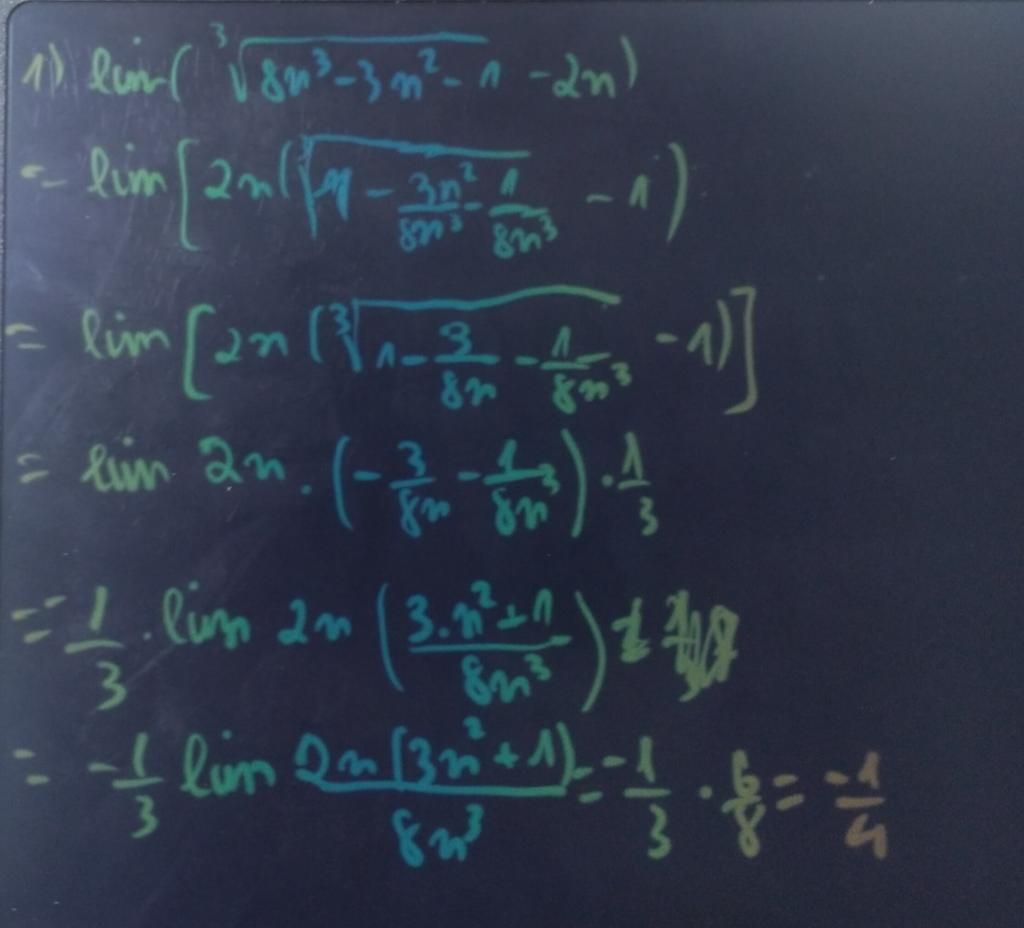 1) lim(³√(8n³-3n²-1) -2n)
= lim[2n(³√(1 - 3n²/8n³ - 1/8n³) - 1)
= lim[2n(³√(1 - 3/8n - 1/8n³) - 1)]
= lim 2n.(-3/8n - 1/8n³)·1/3
= 1/3 · lim 2n(3.n²+1/8n³)
= -1/3 lim 2n(3n²+1)/8n³ = -1/3 · 6/8 = -1/4